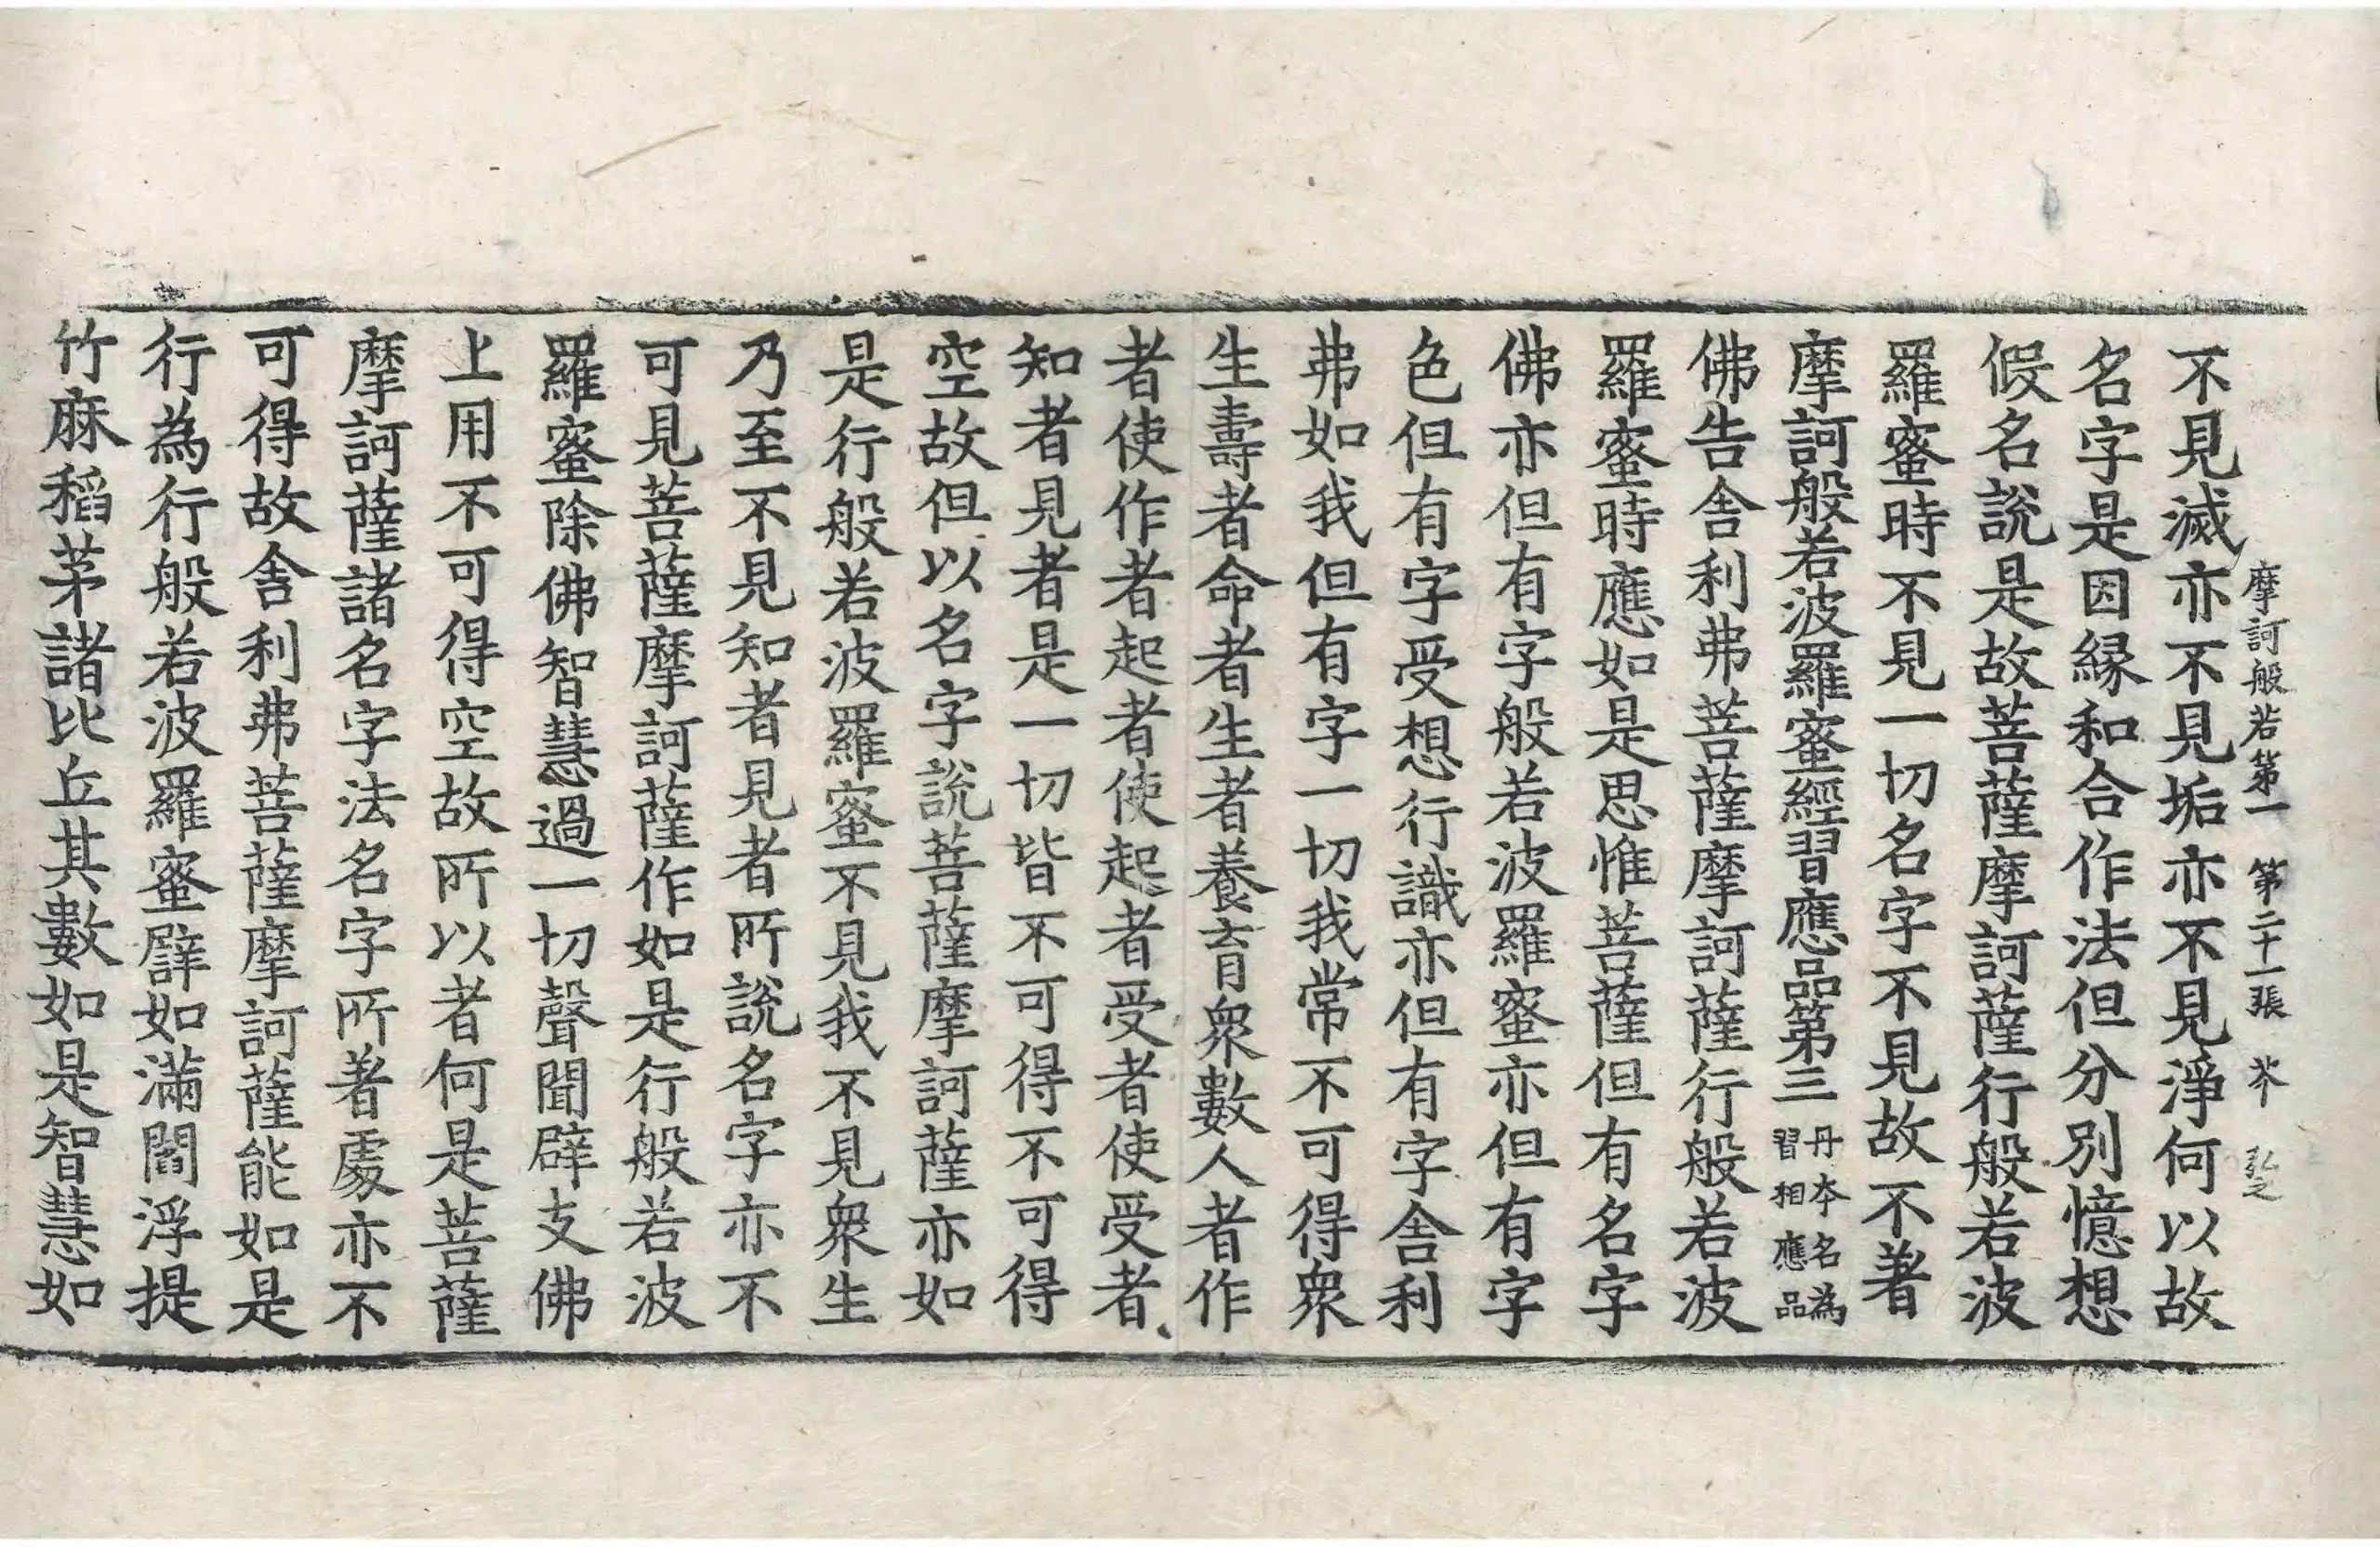 摩訶般若第一 第二十一張 芥 弘之
不見滅亦不見垢亦不見淨何以故
名字是因緣和合作法但分別憶想
假名說是故菩薩摩訶薩行般若波
羅蜜時不見一切名字不見故不著
摩訶般若波羅蜜經習應品第三 丹本名為習相應品
佛告舍利弗菩薩摩訶薩行般若波
羅蜜時應如是思惟菩薩但有名字
佛亦但有字般若波羅蜜亦但有字
色但有字受想行識亦但有字舍利
弗如我但有字一切我常不可得眾
生壽者命者生者養育眾數人者作
者使作者起者使起者受者使受者
知者見者是一切皆不可得不可得
空故但以名字說菩薩摩訶薩亦如
是行般若波羅蜜不見我不見眾生
乃至不見知者見者所說名字亦不
可見菩薩摩訶薩作如是行般若波
羅蜜除佛智慧過一切聲聞辟支佛
上用不可得空故所以者何是菩薩
摩訶薩諸名字法名字所著處亦不
可得故舍利弗菩薩摩訶薩能如是
行為行般若波羅蜜譬如滿閻浮提
竹麻稻茅諸比丘其數如是智慧如